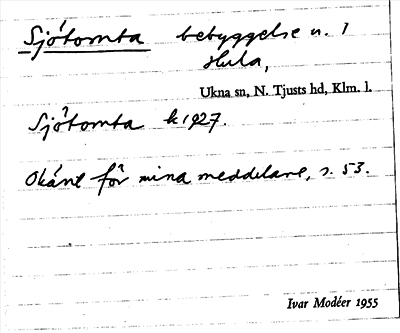 Sjötomta bebyggelse u. 1
Hula,
Ukna sn, N. Tjusts hd, Klm. l.
Sjötomta k 1927.
Okänt för mina meddelare, s. 53.
Ivar Modéer 1955